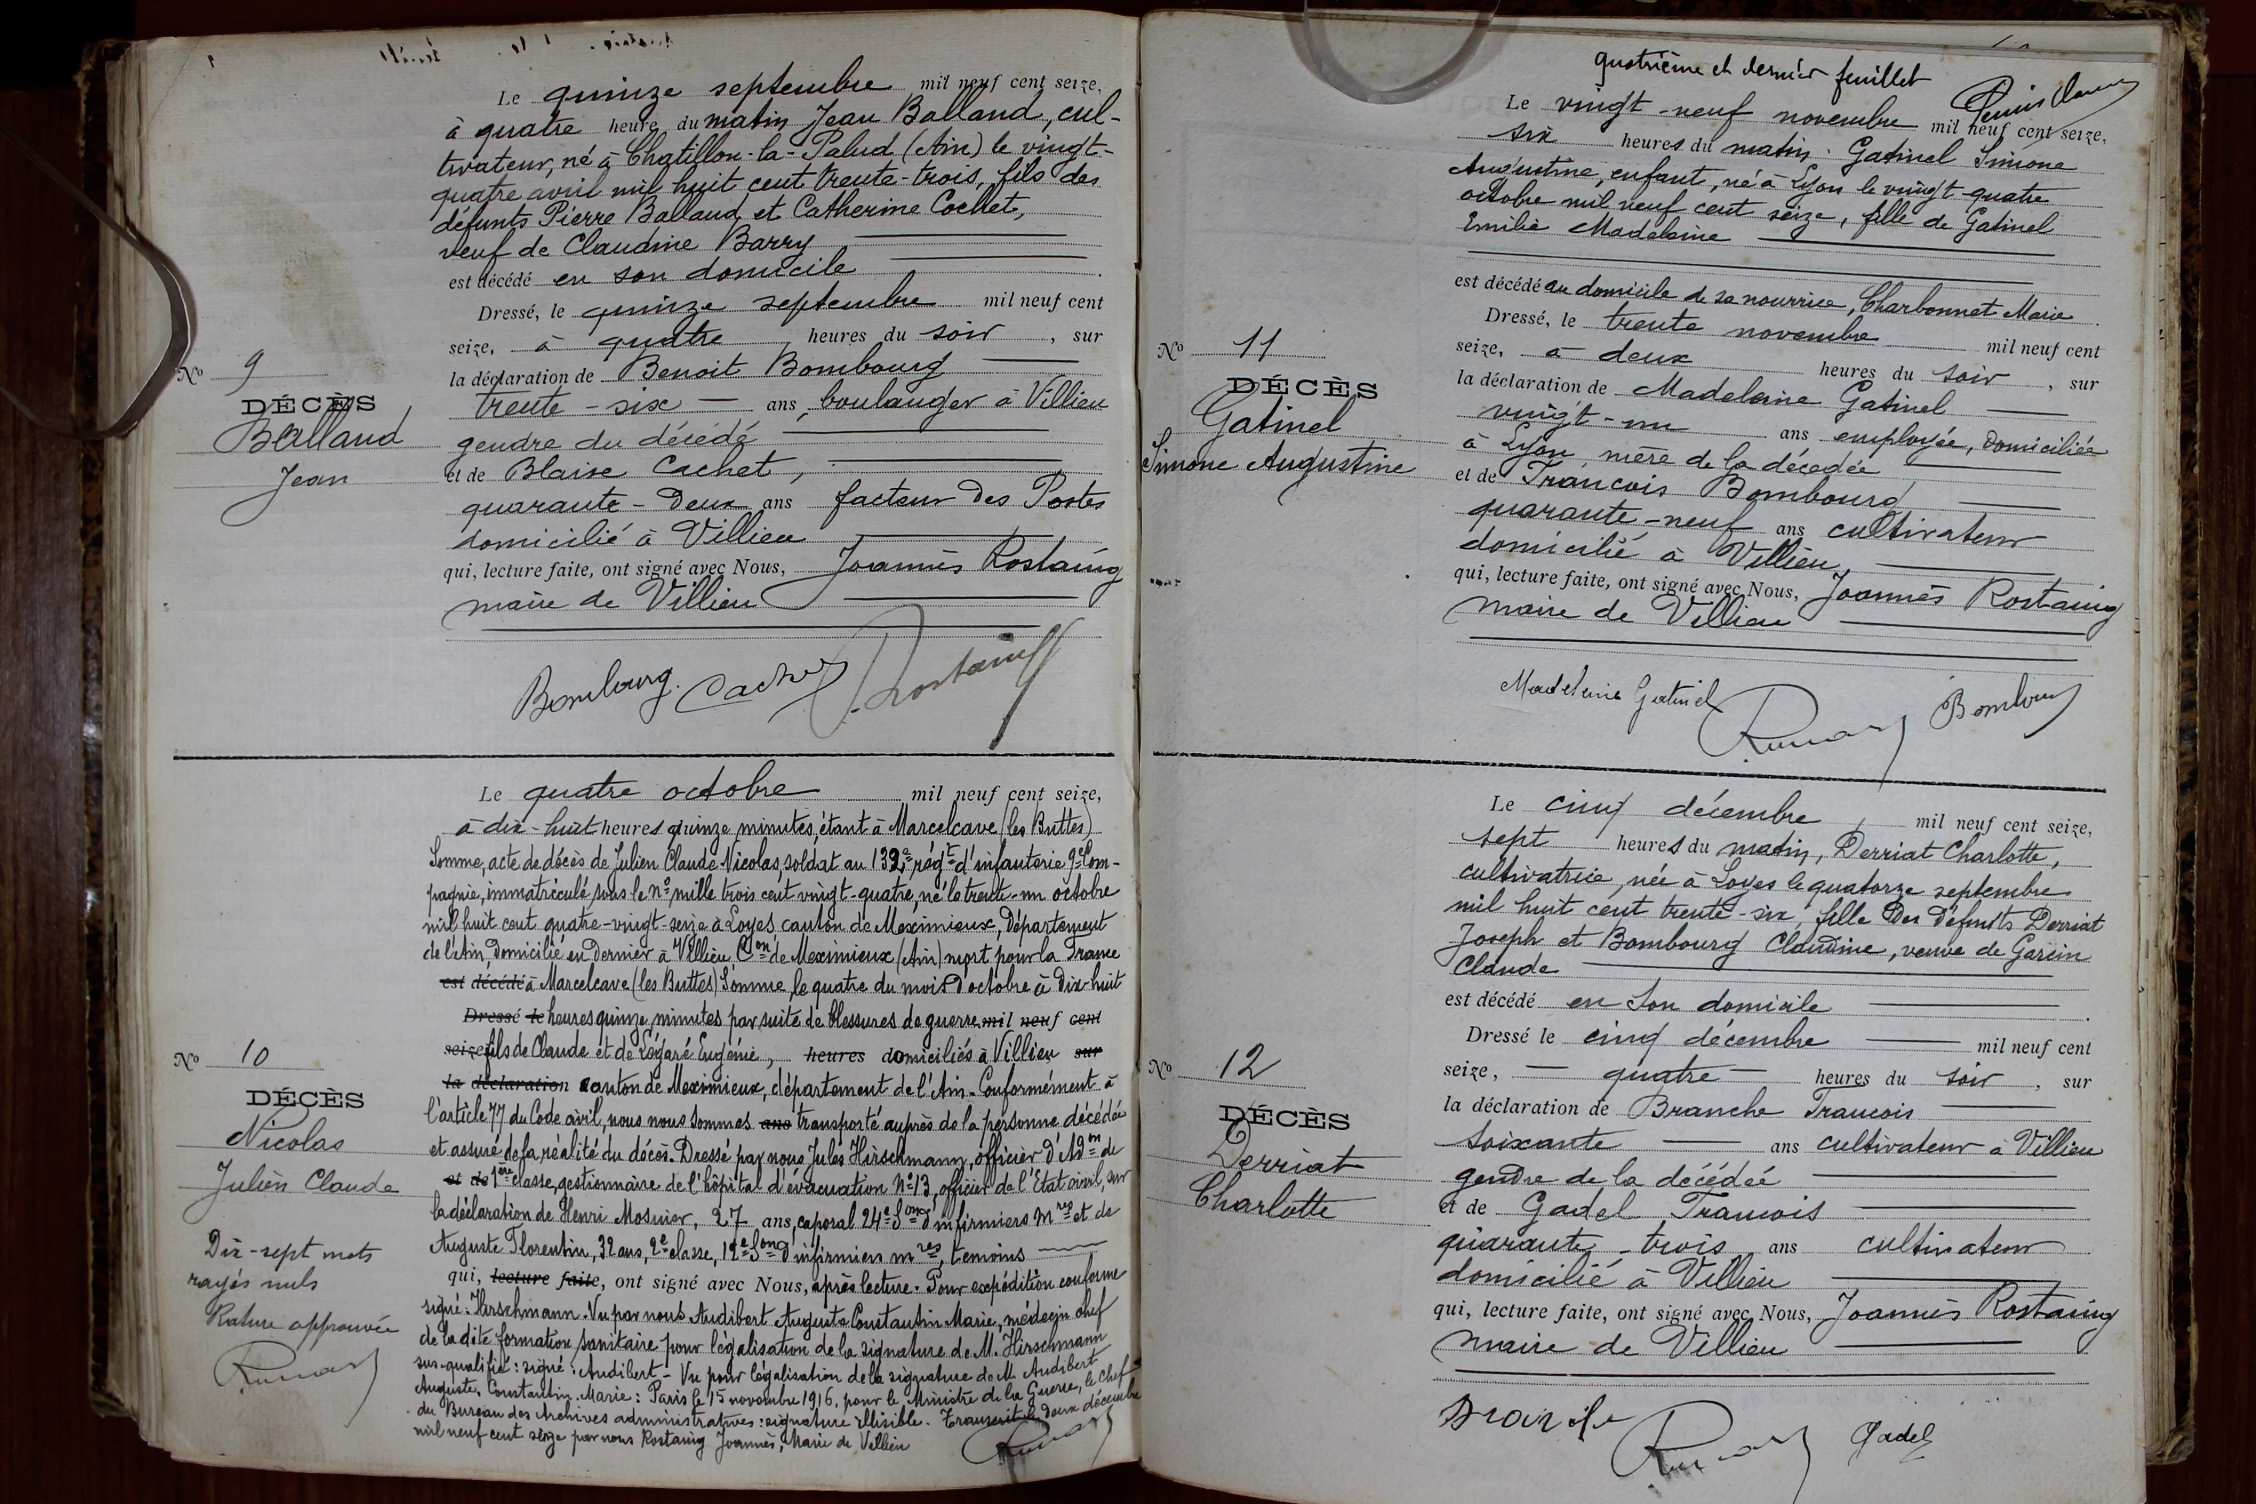 Le quinze septembre mil neuf cent seize,
à quatre heure du matin Jean Balland, cul-
tivateur, né à Chatillon-la-Palud (Ain) le vingt-
quatre avril mil huit cent trente-trois, fils des
défunts Pierre Balland et Catherine Cochet,
veuf de Claudine Barry
est décédé en son domicile
Dressé, le quinze septembre mil neuf cent
seize, à quatre heures du soir, sur
la déclaration de Benoit Bombourg
trente-six ans, boulanger à Villieu
gendre du décédé
et de Blaise Cachet,
quarante-deux ans facteur des Postes
domicilié à Villieu
qui, lecture faite, ont signé avec Nous, Joannès Rostaing
maire de Villieu
Bombourg. Cachet Rostaing
No 9
DÉCÈS
Balland
Jean
Le quatre octobre mil neuf cent seize,
à dix-huit heures quinze minutes, étant à Marcelcave (les Buttes)
Somme, acte de décès de Julien Claude Nicolas, soldat au 133e régt d'infanterie 9e Com-
pagnie, immatriculé sous le no mille trois cent vingt-quatre, né le trente-un octobre
mil huit cent quatre-vingt-seize à Loyes canton de Meximieux, Département
de l'Ain, Domicilié en Dernier à Villieu Con de Meximieux (Ain) mort pour la France
est décédé à Marcelcave (les Buttes) Somme, le quatre du mois d'octobre à dix-huit
Dressé le heures quinze minutes par suite de blessures de guerre mil neuf cent
seize fils de Claude et de Légaré Eugénie, heures domiciliés à Villieu sur
la déclaration canton de Meximieux, département de l'Ain. Conformément à
l'article 77 du Code civil, nous nous sommes ans transporté auprès de la personne décédée
et assuré de la réalité du décès. Dressé par nous Jules Hirschmann, officier d'Adon de
et de 1ère classe, gestionnaire de l'hôpital d'évacuation No 13, officier de l'Etat civil, sur
la déclaration de Henri Mosnier, 27 ans, caporal 24e Son d'infirmiers mres et de
Auguste Florentin, 32 ans, 2e classe, 12e Son d'infirmiers mres, témoins
qui, lecture faite, ont signé avec Nous, après lecture. Pour expédition conforme
signé: Hirschmann. Vu par nous Audibert Auguste Constantin Marie, médecin chef
de la dite formation sanitaire pour légalisation de la signature de M. Hirschmann
sus-qualifié: signé: Audibert - Vu pour légalisation de la signature de M. Audibert
Auguste, Constantin. Marie: Paris le 15 novembre 1916, pour le Ministre de la Guerre, le Chef
du Bureau des Archives administratives: signature illisible. Transcrit le deux décembre
mil neuf cent seize par nous Rostaing Joannès, Maire de Villieu
No 10
DÉCÈS
Nicolas
Julien Claude
Dix-sept mots
rayés nuls
Rature approuvée
quatrième et dernier feuillet
Le vingt-neuf novembre mil neuf cent seize,
six heures du matin. Gatinel Simone
Augustine, enfant, né à Lyon le vingt-quatre
octobre mil neuf cent seize, fille de Gatinel
Emilie Madeleine
est décédé au domicile de sa nourrice, Charbonnet Marie.
Dressé, le trente novembre mil neuf cent
seize, à deux heures du soir, sur
la déclaration de Madeleine Gatinel
vingt-un ans employée, domiciliée
à Lyon mère de la décédée
et de François Bombourg
quarante-neuf ans cultivateur
domicilié à Villieu,
qui, lecture faite, ont signé avec Nous, Joannès Rostaing
maire de Villieu
Madeleine Gatinel Bombourg
No 11
DÉCÈS
Gatinel
Simone Augustine
Le cinq décembre, mil neuf cent seize,
sept heures du matin, Derriat Charlotte,
cultivatrice, née à Loyes le quatorze septembre
mil huit cent trente-six, fille Des Défunts Derriat
Joseph et Bombourg Claudine, veuve de Garcin
Claude
est décédé en son domicile
Dressé le cinq décembre mil neuf cent
seize, quatre heures du soir, sur
la déclaration de Branche Francois
soixante ans cultivateur à Villieu
gendre de la décédée
et de Gadel Francois
quarante-trois ans cultivateur
domicilié à Villieu
qui, lecture faite, ont signé avec Nous, Joannès Rostaing
maire de Villieu
Branche Gadel
No 12
DÉCÈS
Derriat
Charlotte